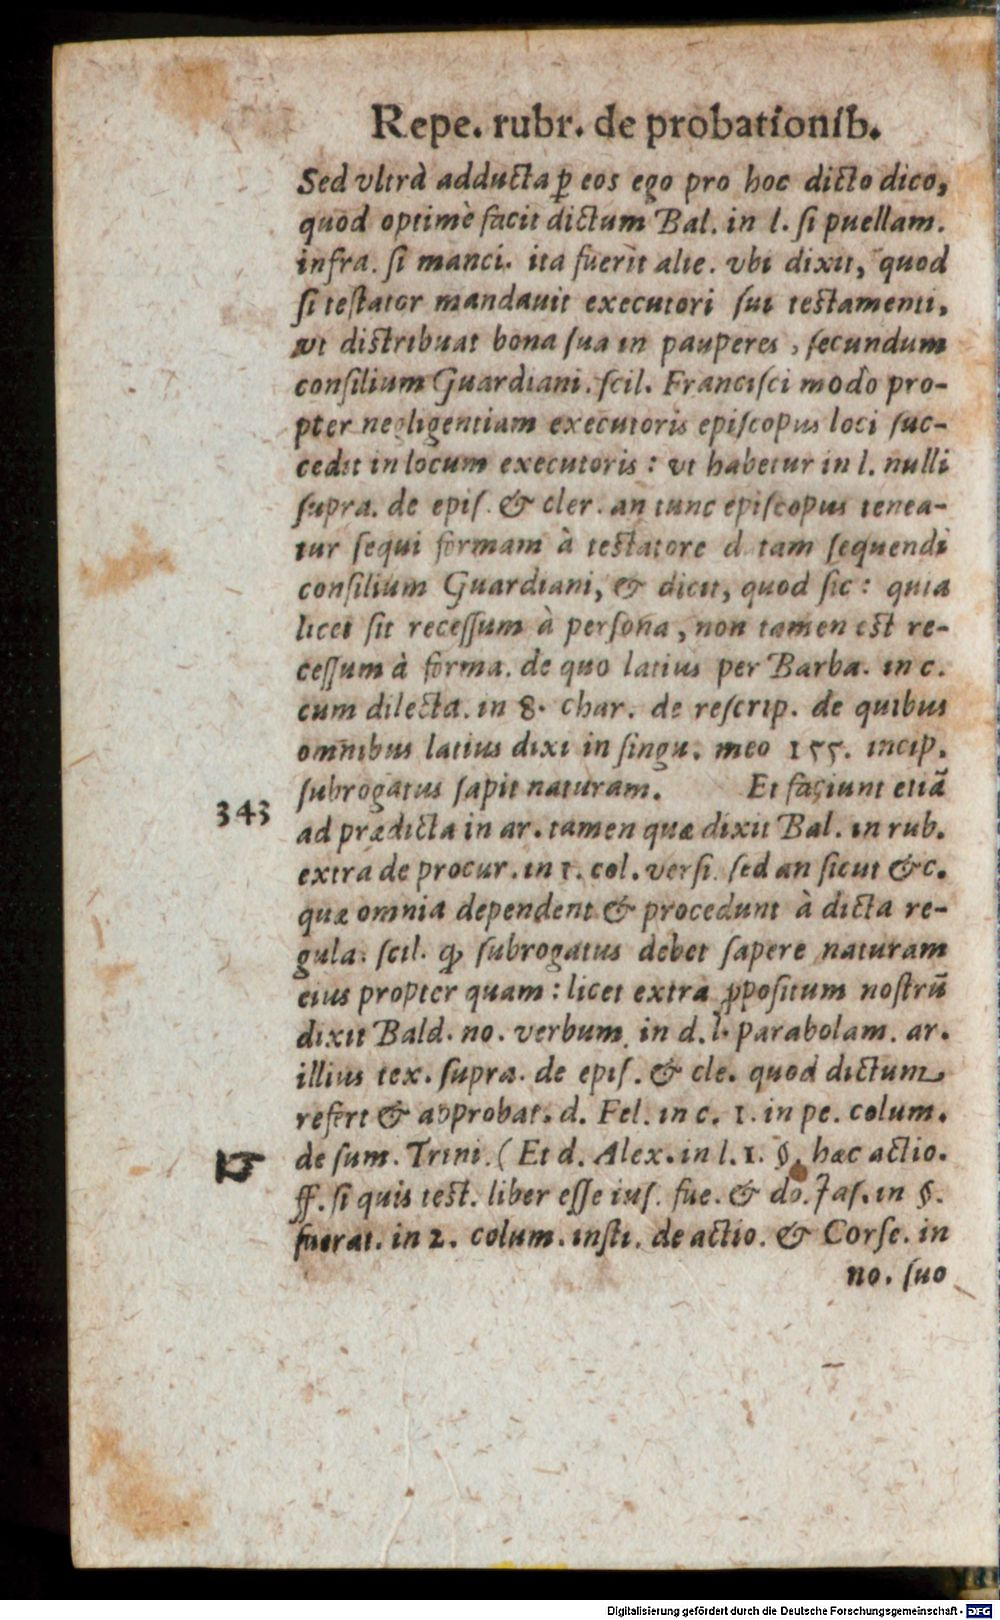 Repe. rubr. de probationib.
Sed vltrà adducta ꝑ eos ego pro hoc dicto dico,
quod optimè facit dictum Bal. in l. ſi puellam.
infra. ſi manci. ita fuerit alie. vbi dixit, quod
ſi teſtator mandauit executori ſui teſtamenti,
vt diſtribuat bona ſua in pauperes, ſecundum
conſilium Guardiani. ſcil. Franciſci modo pro-
pter negligentiam executoris epiſcopus loci ſuc-
cedit in locum executoris: vt habetur in l. nulli
ſupra. de epiſ. & cler. an tunc epiſcopus tenea-
tur ſequi formam à teſtatore d tam ſequendi
conſilium Guardiani, & dicit, quod ſic: quia
licet ſit receſſum à perſona, non tamen eſt re-
ceſſum à forma. de quo latius per Barba. in c.
cum dilecta. in 8. char. de reſcrip. de quibus
omnibus latius dixi in ſingu. meo 155. incip.
ſubrogatus ſapit naturam. Et faciunt etiã
343
ad prædicta in ar. tamen quæ dixit Bal. in rub.
extra de procur. in 1. col. verſi. ſed an ſicut &c.
quæ omnia dependent & procedunt à dicta re-
gula. ſcil. ꝙ ſubrogatus debet ſapere naturam
eius propter quam: licet extra ꝓpoſitum noſtrũ
dixit Bald. no. verbum. in d. l. parabolam. ar.
illius tex. ſupra. de epiſ. & cle. quod dictum
refert & approbat. d. Fel. in c. 1. in pe. colum.
de ſum. Trini. (Et d. Alex. in l. 1. §. hæc actio.
ff. ſi quis teſt. liber eſſe iuſ. fue. & do. Jaſ. in §.
fuerat. in 2. colum. inſti. de actio. & Corſe. in
no. ſuo
Digitalisierung gefördert durch die Deutsche Forschungsgemeinschaft - DFG